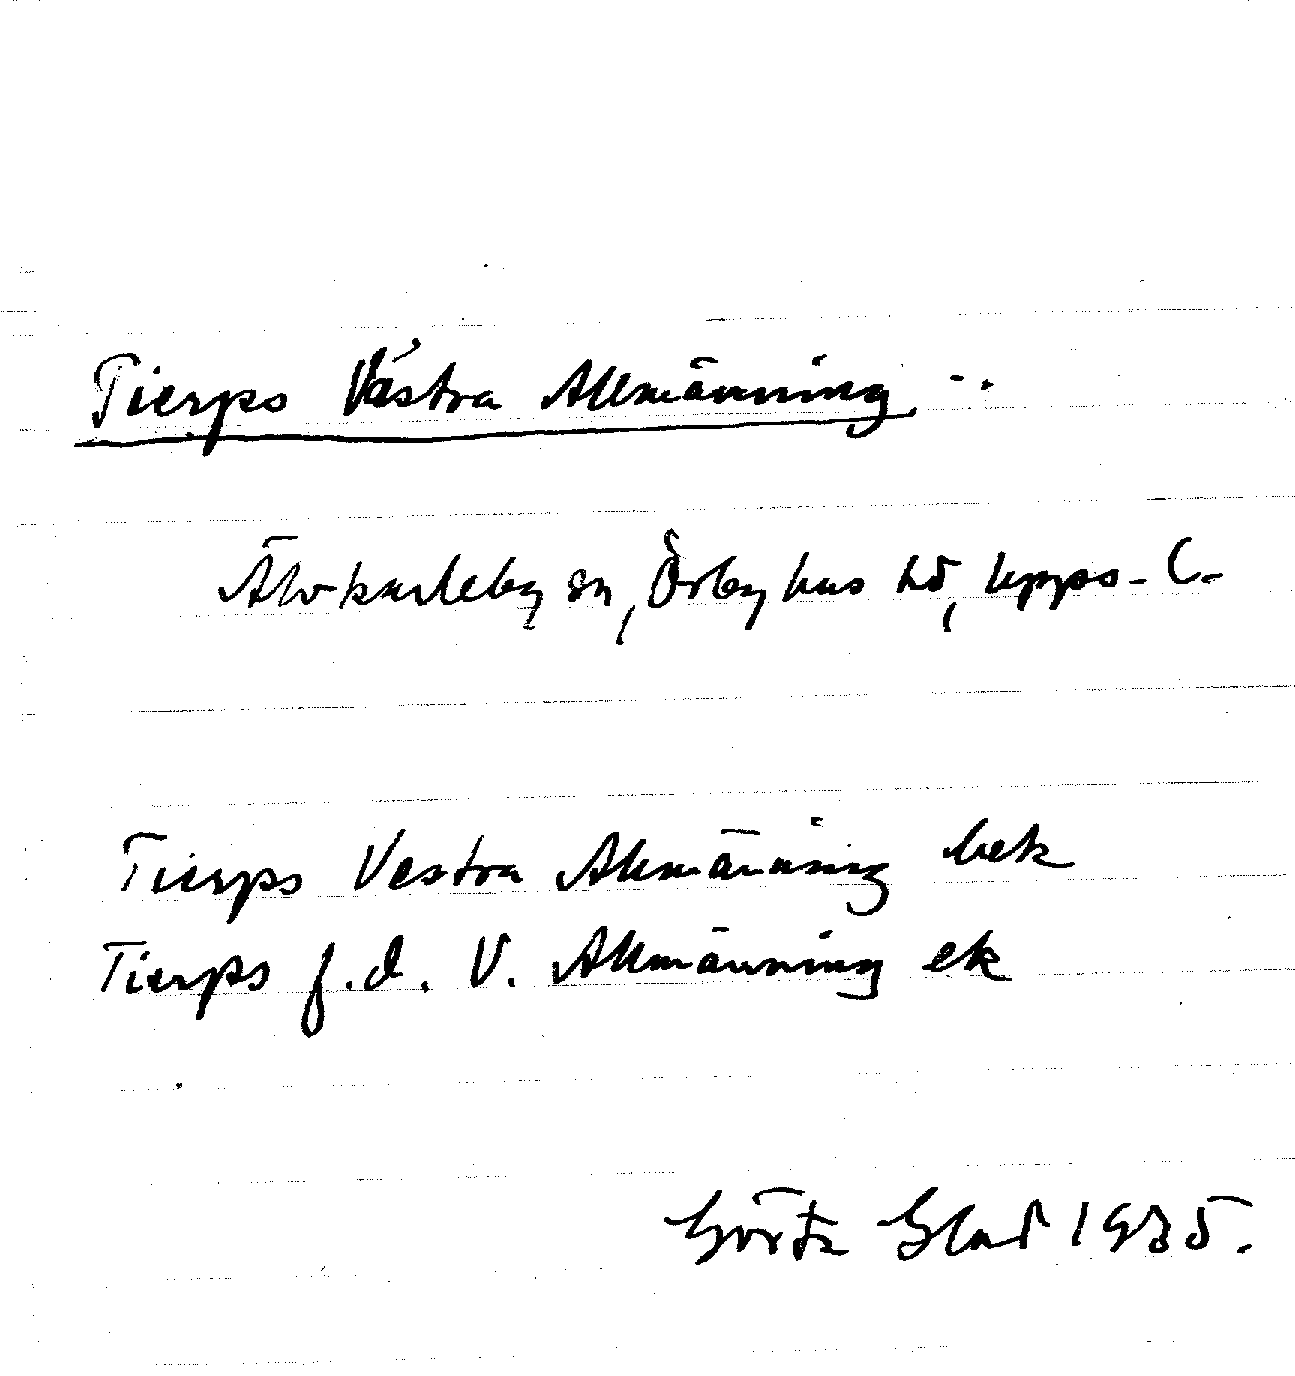 Tierps Västra Allmänning
Älvkarleby sn, Örbyhus hd, Upps. l.
Tierps Vestra Allmänning bek
Tierps f.d. V. Allmänning ek
Gösta Glad 1935.